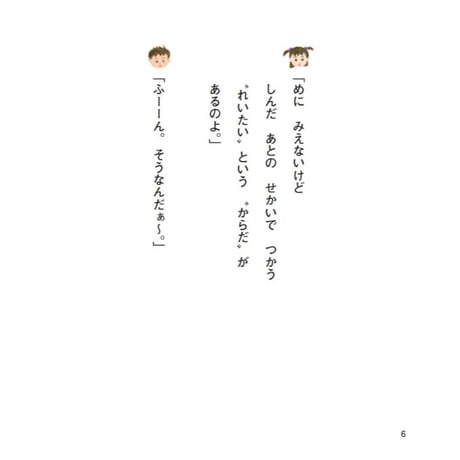 「めに　みえないけど
しんだ　あとの　せかいで　つかう
〝れいたい〟という　〝からだ〟が
あるのよ。」
「ふーーん。　そうなんだぁ〜。」
6